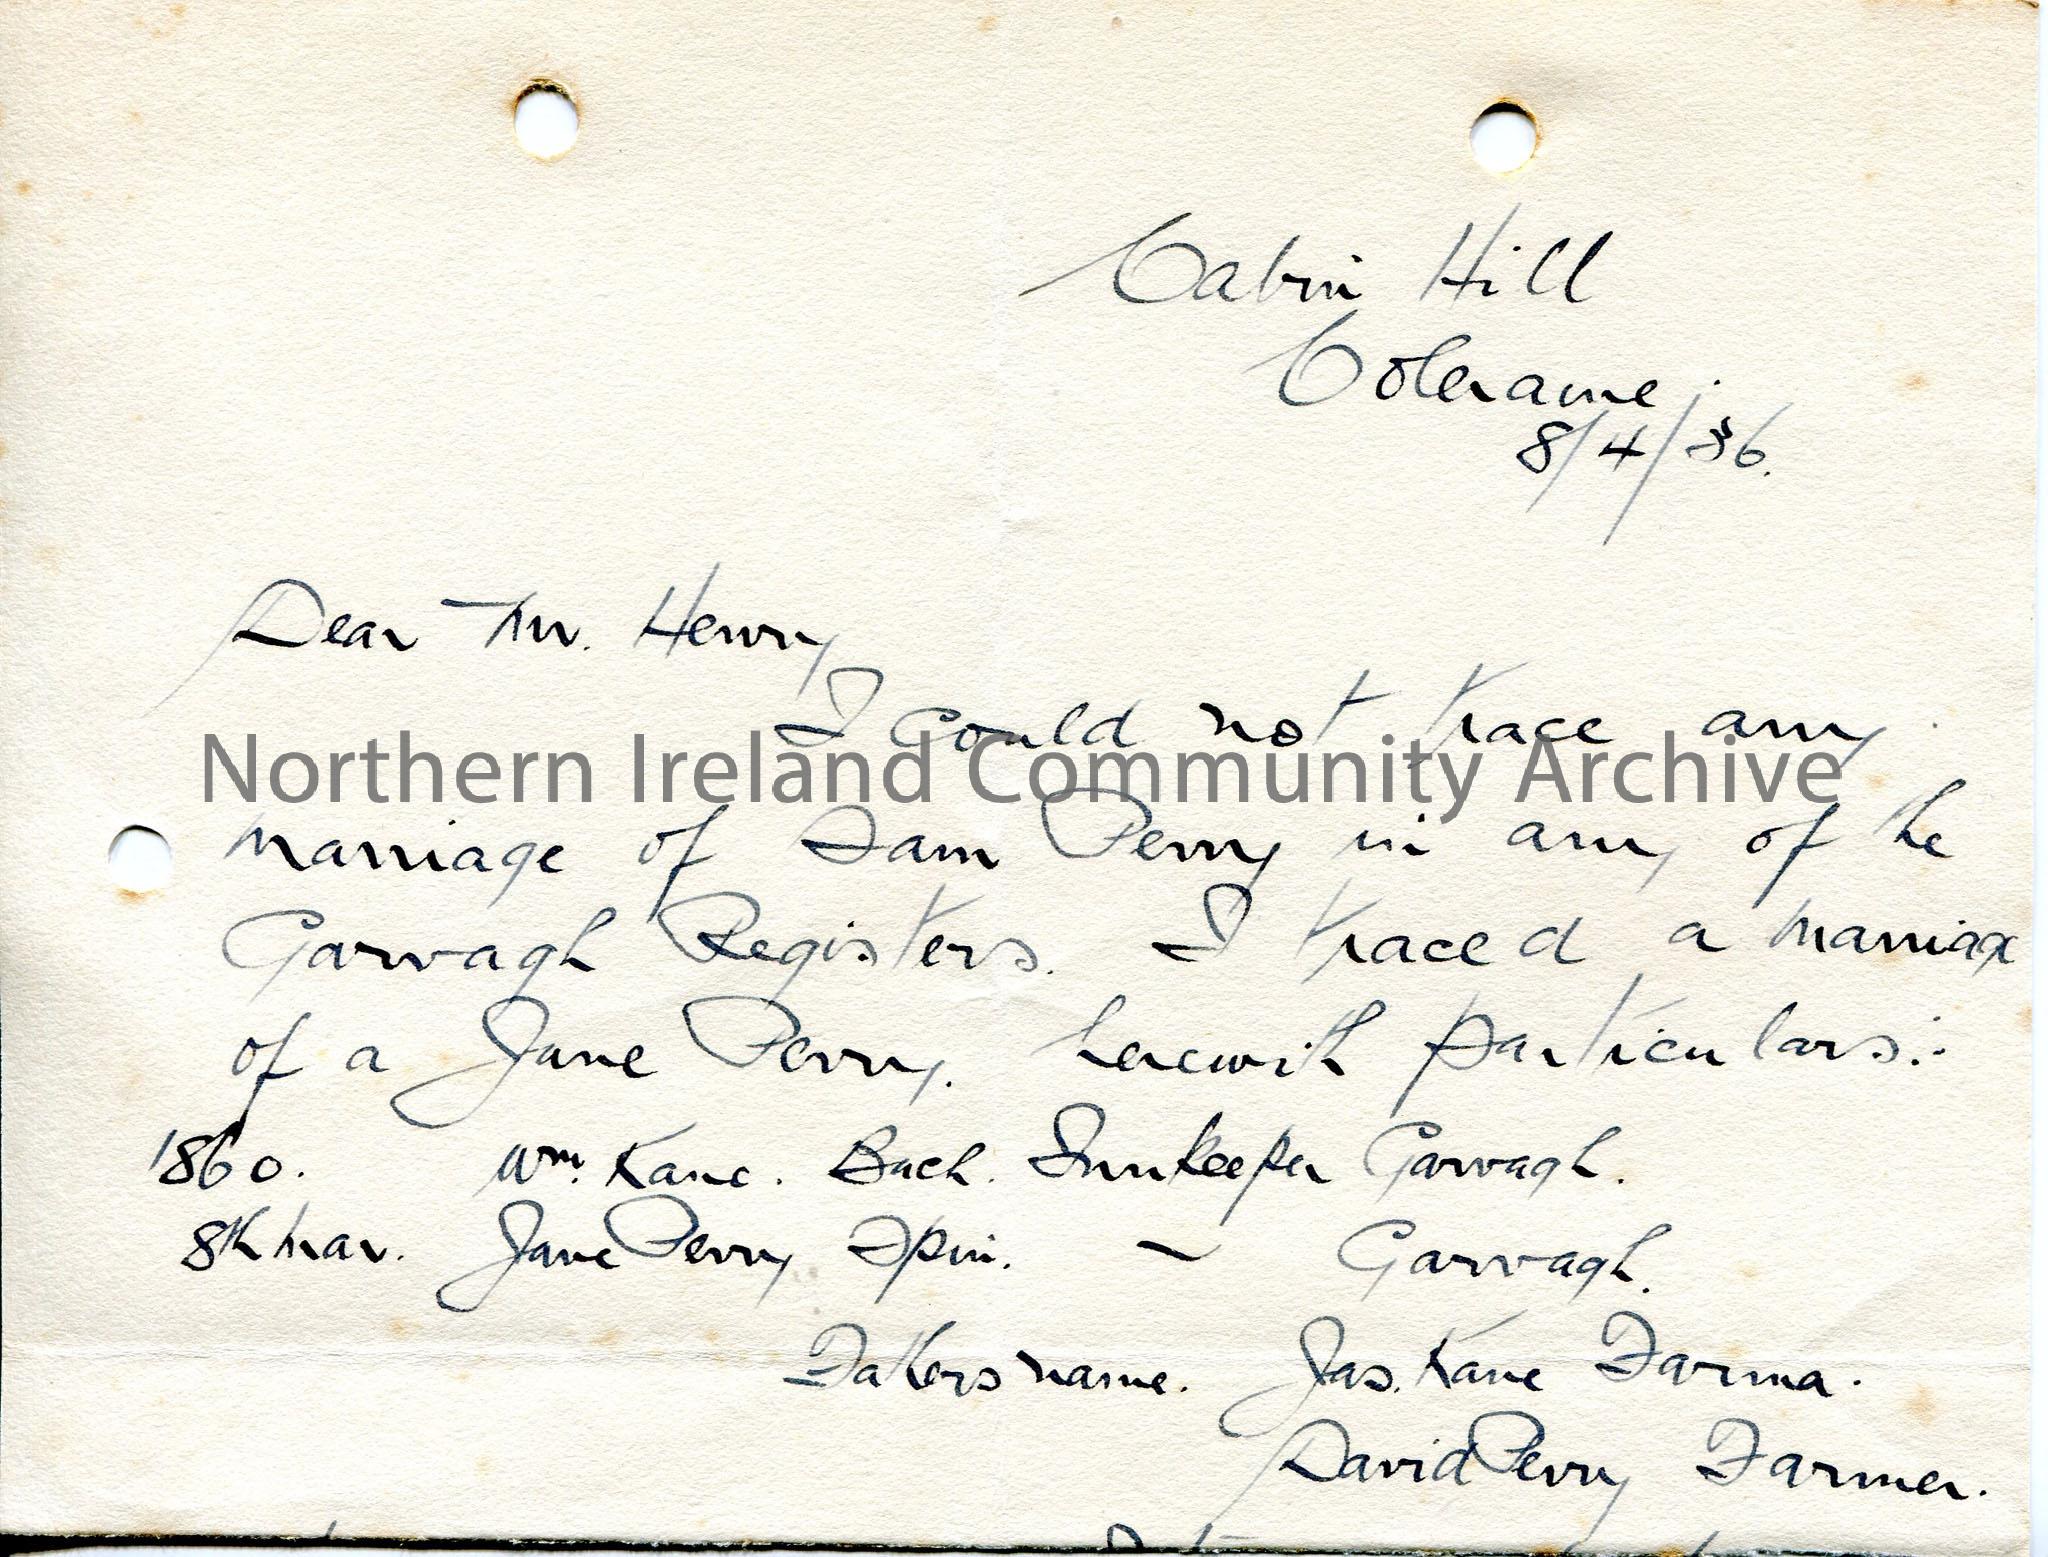 Cabin Hill
Coleraine.
8/4/36.
Dear Mr. Henry
I could not trace any
Northern Ireland Community Archive
marriage of Sam Perry in any of the
Garvagh Registers. I traced a marriage
of a Jane Perry. herewith particulars:-
1860. Wm. Kane. Bach. Innkeeper Garvagh.
8th Mar. Jane Perry Spin. ~ Garvagh.
Fathers name. Jas. Kane Farmer.
David Perry Farmer.